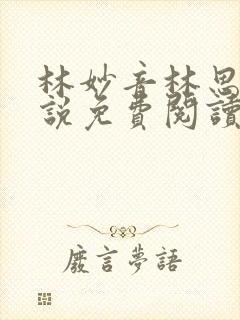 林妙音林思
說免費閱讀
廢言夢語